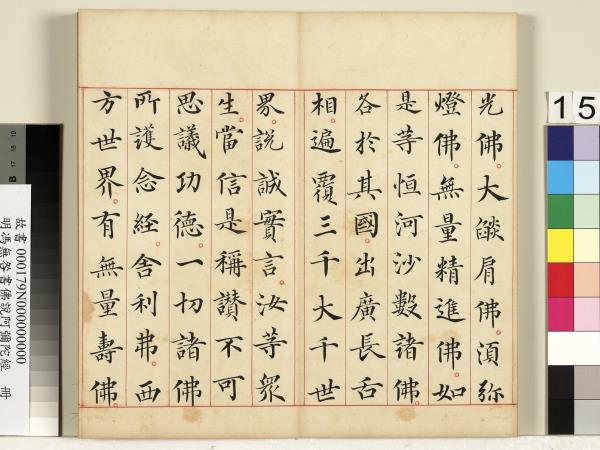 光佛。大燄肩佛。須弥
燈佛。無量精進佛。如
是等恒河沙數諸佛。
各於其國。出廣長舌
相。遍覆三千大千世
界。說誠實言。汝等眾
生。當信是稱讚不可
思議功德。一切諸佛
所護念經。舍利弗。西
方世界。有無量壽佛。
15
故書 000179N000000000
明馮無咎書佛說阿彌陀經 冊